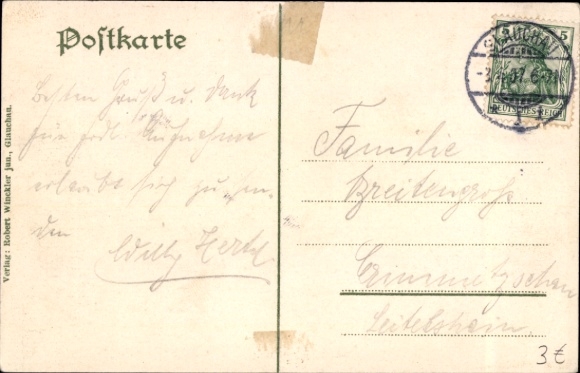 Postkarte
Besten Gruß u. Dank
für frdl. Aufnahme
erlaubt sich zu sen-
den
Willy Hertel
Familie
Breitengroß
Crimmitzschau
Leitelshain.
GLAUCHAU
5
DEUTSCHES REICH
Verlag: Robert Winckler jun., Glauchau.
3€